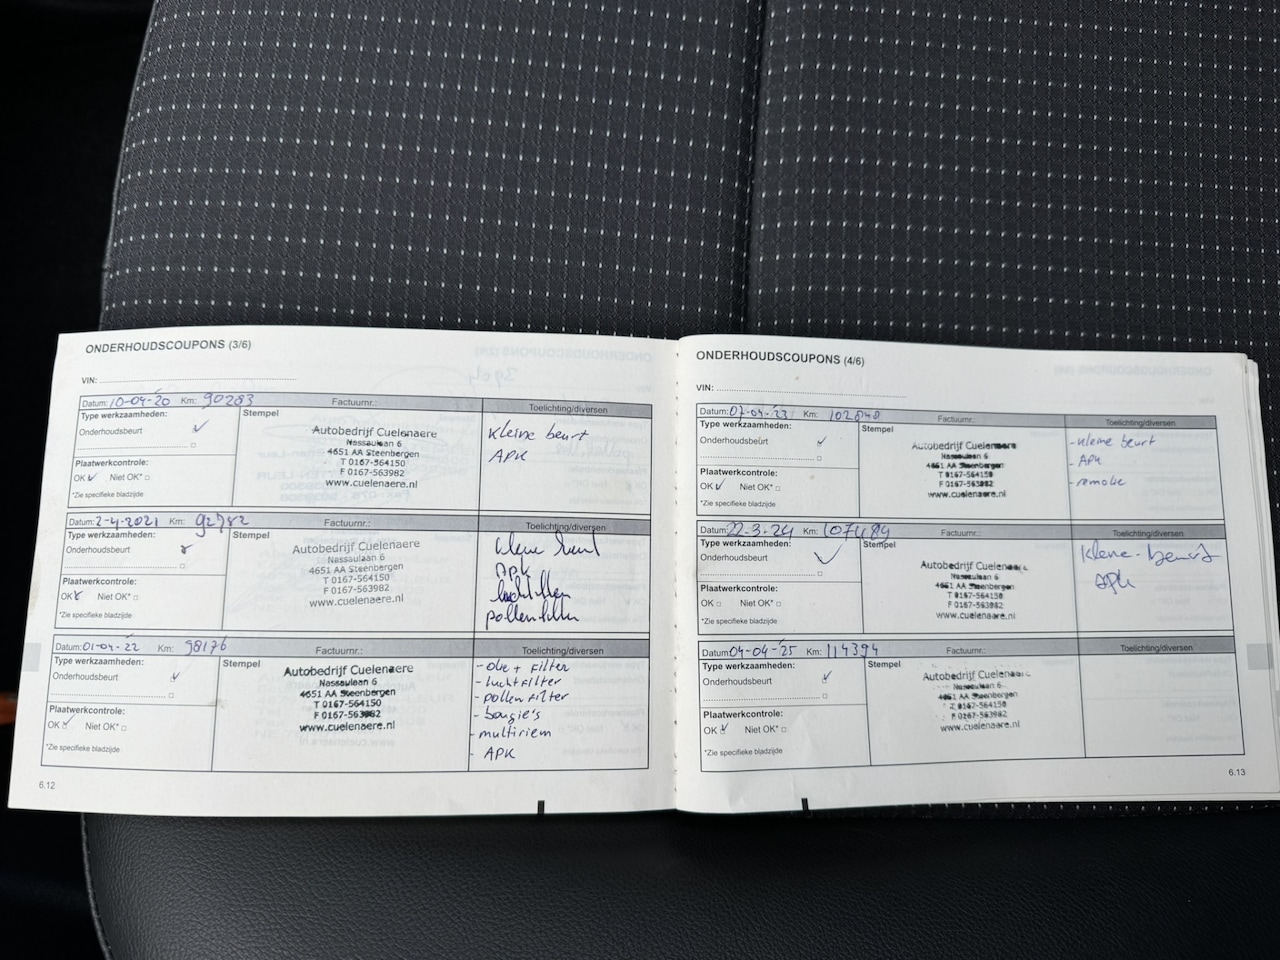 ONDERHOUDSCOUPONS (3/6)
VIN:
Datum: 10-04-20 Km: 90283 Factuurnr.: Toelichting/diversen
Type werkzaamheden:
Onderhoudsbeurt
Plaatwerkcontrole:
OK Niet OK*
*Zie specifieke bladzijde
Stempel
Autobedrijf Cuelenaere
Nassaulaan 6
4651 AA Steenbergen
T 0167-564150
F 0167-563982
www.cuelenaere.nl
Kleine beurt
APK
Datum: 2-4-2021 Km: 92782 Factuurnr.: Toelichting/diversen
Type werkzaamheden:
Onderhoudsbeurt
Plaatwerkcontrole:
OK Niet OK*
*Zie specifieke bladzijde
Stempel
Autobedrijf Cuelenaere
Nassaulaan 6
4651 AA Steenbergen
T 0167-564150
F 0167-563982
www.cuelenaere.nl
kleine beurt
APK
pollenfilter
Datum: 01-04-22 Km: 98176 Factuurnr.: Toelichting/diversen
Type werkzaamheden:
Onderhoudsbeurt
Plaatwerkcontrole:
OK Niet OK*
*Zie specifieke bladzijde
Stempel
Autobedrijf Cuelenaere
Nassaulaan 6
4651 AA Steenbergen
T 0167-564150
F 0167-563982
www.cuelenaere.nl
- olie + filter
- luchtfilter
- pollen filter
- bougie's
- multiriem
- APK
6.12
ONDERHOUDSCOUPONS (4/6)
VIN:
Datum: 07-04-23 Km: 102848 Factuurnr.: Toelichting/diversen
Type werkzaamheden:
Onderhoudsbeurt
Plaatwerkcontrole:
OK Niet OK*
*Zie specifieke bladzijde
Stempel
Autobedrijf Cuelenaere
Nassaulaan 6
4651 AA Steenbergen
T 0167-564150
F 0167-563982
www.cuelenaere.nl
- kleine beurt
- APK
- remolie
Datum: 22-3-24 Km: 107484 Factuurnr.: Toelichting/diversen
Type werkzaamheden:
Onderhoudsbeurt
Plaatwerkcontrole:
OK Niet OK*
*Zie specifieke bladzijde
Stempel
Autobedrijf Cuelenaere
Nassaulaan 6
4651 AA Steenbergen
T 0167-564150
F 0167-563982
www.cuelenaere.nl
kleine beurt
APK
Datum: 04-04-25 Km: 114394 Factuurnr.: Toelichting/diversen
Type werkzaamheden:
Onderhoudsbeurt
Plaatwerkcontrole:
OK Niet OK*
*Zie specifieke bladzijde
Stempel
Autobedrijf Cuelenaere
Nassaulaan 6
4651 AA Steenbergen
T 0167-564150
F 0167-563982
www.cuelenaere.nl
6.13